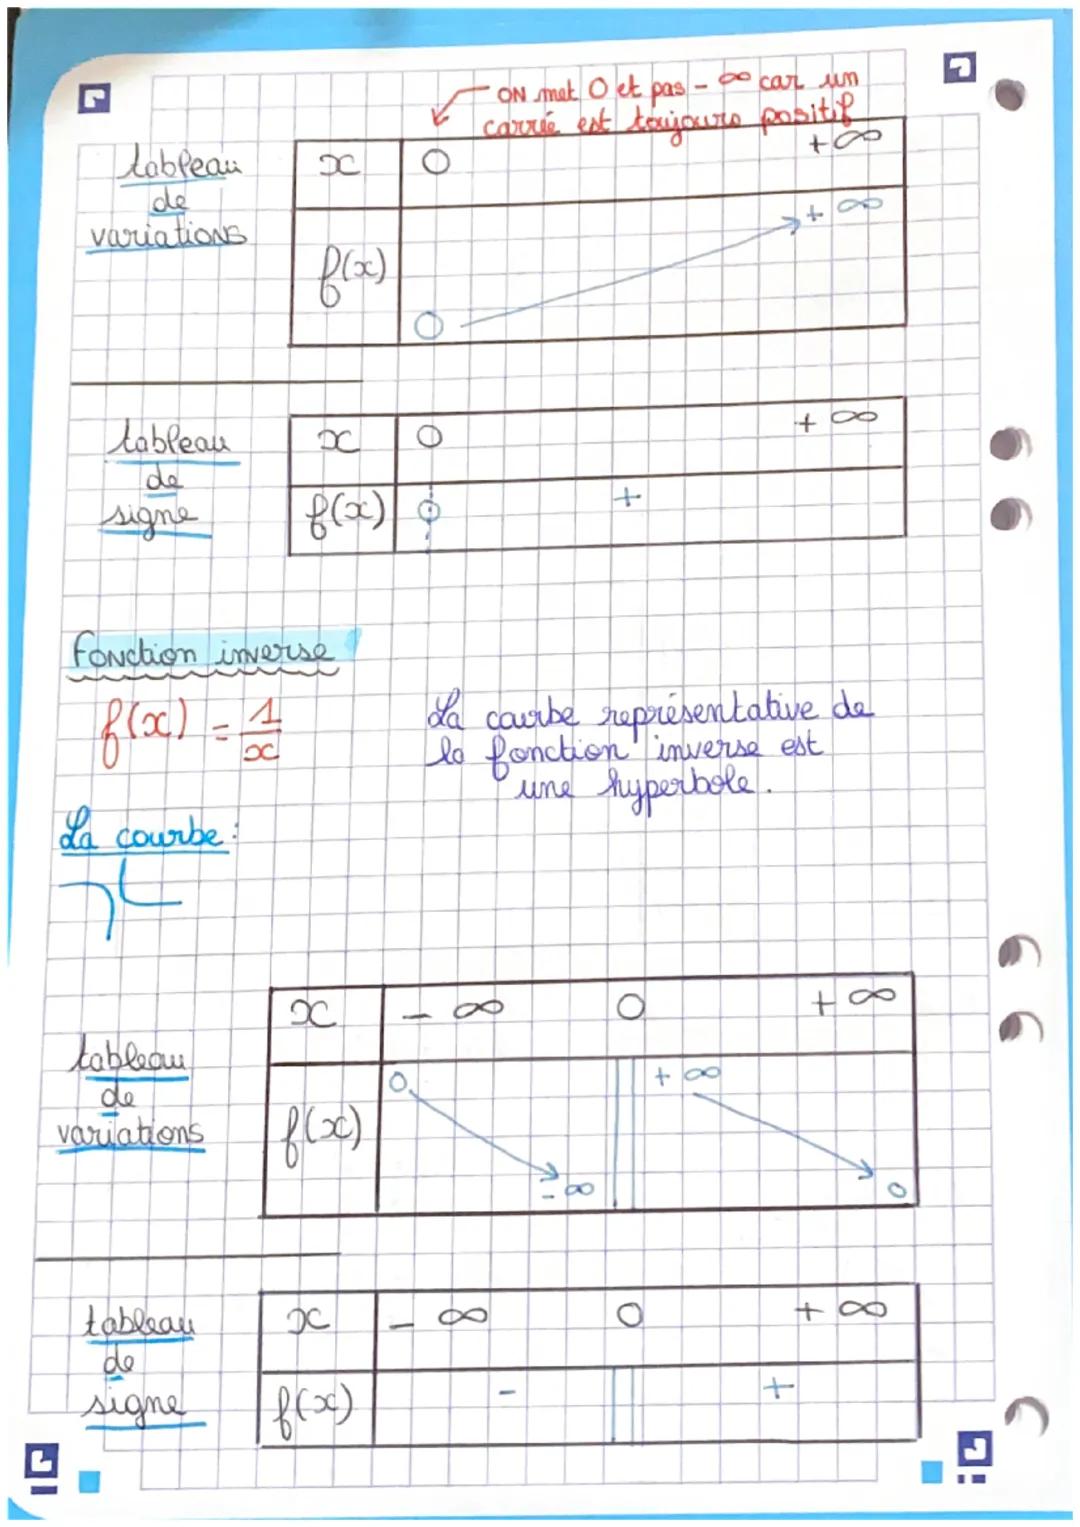 ON met 0 et pas - ∞ car un
carrié est toujours positif
tableau
de
variations
x 0 +∞
f(x) 0 + ∞
tableau
de
signe
x 0 + ∞
f(x) 0 +
Fonction inverse
f(x) = 1/x
La courbe représentative de
la fonction inverse est
une hyperbole.
La courbe :
tableau
de
variations
x - ∞ 0 + ∞
f(x) 0 - ∞ + ∞ 0
tableau
de
signe
x - ∞ 0 + ∞
f(x) - +